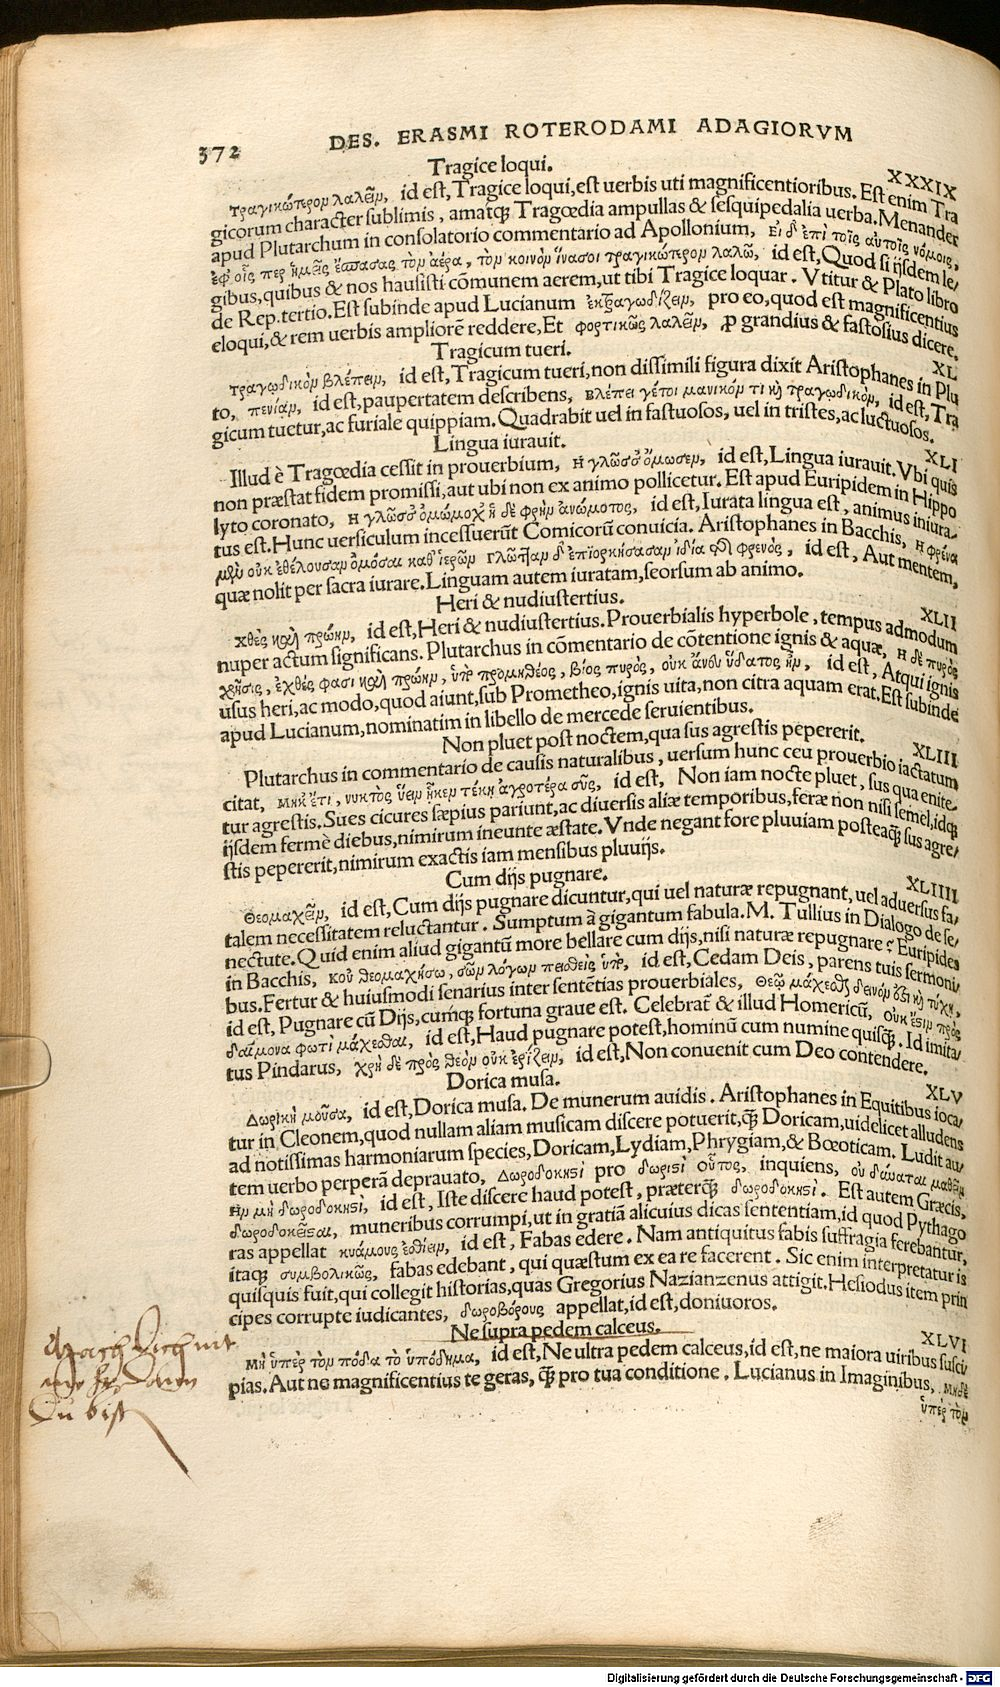 372
DES. ERASMI ROTERODAMI ADAGIORVM
Tragice loqui.
XXXIX
τραγικώτερον λαλεῖν, id est, Tragice loqui, est uerbis uti magnificentioribus. Est enim Tra
gicorum character sublimis, amatq́; Tragœdia ampullas & sesquipedalia uerba. Menander
apud Plutarchum in consolatorio commentario ad Apollonium, εἰ δ' ἐπὶ τοῖς αὐτοῖς νόμοις,
ἐφ' οἷς περ ἡμεῖς ἔσπασας τὸν ἀέρα, τὸν κοινὸν ἵνα σοι τραγικώτερον λαλῶ, id est, Quod si ijsdem le/
gibus, quibus & nos hausisti cōmunem aerem, ut tibi Tragice loquar. Vtitur & Plato libro
de Rep. tertio. Est subinde apud Lucianum ἐκτραγωδίζειν, pro eo, quod est magnificentius
eloqui, & rem uerbis ampliorē reddere, Et φορτικῶς λαλεῖν, ꝓ grandius & fastosius dicere.
Tragicum tueri.
XL
τραγωδικὸν βλέπειν, id est, Tragicum tueri, non dissimili figura dixit Aristophanes in Plu
to, πενίαν, id est, paupertatem describens, βλέπει γέτοι μανικόν τι καὶ τραγωδικὸν, id est, Tra
gicum tuetur, ac furiale quippiam. Quadrabit uel in fastuosos, uel in tristes, ac luctuosos.
Lingua iurauit.
XLI
Illud è Tragœdia cessit in prouerbium, ἡ γλῶσσ' ὄμωσεν, id est, Lingua iurauit. Vbi quis
non præstat fidem promissi, aut ubi non ex animo pollicetur. Est apud Euripidem in Hippo
lyto coronato, ἡ γλῶσσ' ὀμώμοχ' ἡ δὲ φρὴν ἀνώμοτος, id est, Iurata lingua est, animus iniura/
tus est. Hunc uersiculum incessuerūt Comicorū conuicia. Aristophanes in Bacchis, ἡ φρένα
μὲν οὐκ ἐθέλουσαν ὀμόσαι καθ' ἱερῶν γλῶτταν δ' ἐπιορκήσασαν ἰδία τῆς φρενὸς, id est, Aut mentem,
quæ nolit per sacra iurare. Linguam autem iuratam, seorsum ab animo.
Heri & nudiustertius.
XLII
χθὲς καὶ πρώην, id est, Heri & nudiustertius. Prouerbialis hyperbole, tempus admodum
nuper actum significans. Plutarchus in cōmentario de cōtentione ignis & aquæ, ἡ δὲ πυρὸς
χρῆσις, ἐχθές φασι καὶ πρώην, ὑπὸ προμηθέος, βίος πυρὸς, οὐκ ἄνευ ὕδατος ἦν, id est, Atqui ignis
usus heri, ac modo, quod aiunt, sub Prometheo, ignis uita, non citra aquam erat. Est subinde
apud Lucianum, nominatim in libello de mercede seruientibus.
Non pluet post noctem, qua sus agrestis pepererit.
XLIII
Plutarchus in commentario de causis naturalibus, uersum hunc ceu prouerbio iactatum
citat, μηκ' ἔτι, νυκτὸς ὕειν ἧκεν τέκῃ ἀγροτέρα σῦς, id est, Non iam nocte pluet, sus qua enite/
tur agrestis. Sues cicures sæpius pariunt, ac diuersis aliæ temporibus, feræ non nisi semel, idq́;
ijsdem fermè diebus, nimirum ineunte æstate. Vnde negant fore pluuiam posteaq̃ sus agre/
stis pepererit, nimirum exactis iam mensibus pluuijs.
Cum dijs pugnare.
XLIIII
Θεομαχεῖν, id est, Cum dijs pugnare dicuntur, qui uel naturæ repugnant, uel aduersus fa/
talem necessitatem reluctantur. Sumptum à gigantum fabula. M. Tullius in Dialogo de se/
nectute. Quid enim aliud gigantū more bellare cum dijs, nisi naturæ repugnare? Euripides
in Bacchis, κοὐ θεομαχήσω, σῶν λόγων πεισθεὶς ὑπὸ, id est, Cedam Deis, parens tuis sermoni/
bus. Fertur & huiusmodi senarius inter sentētias prouerbiales, Θεῷ μάχεσθαι δεινόν ἐστι καὶ τύχῃ,
id est, Pugnare cū Dijs, cumq́; fortuna graue est. Celebrat̃ & illud Homericū, οὐκ ἔστιν πρὸς
δαίμονα φωτὶ μάχεσθαι, id est, Haud pugnare potest, hominū cum numine quisq̃. Id imita/
tus Pindarus, χρὴ δὲ πρὸς θεὸν οὐκ ἐρίζειν, id est, Non conuenit cum Deo contendere.
Dorica musa.
XLV
Δωρικὴ μοῦσα, id est, Dorica musa. De munerum auidis. Aristophanes in Equitibus ioca/
tur in Cleonem, quod nullam aliam musicam discere potuerit, q̃ Doricam, uidelicet alludens
ad notissimas harmoniarum species, Doricam, Lydiam, Phrygiam, & Bœoticam. Ludit au/
tem uerbo perperā deprauato, Δωροδοκηστὶ pro δωριστὶ οὗτος, inquiens, οὐ δύναται μαθεῖν
ἢν μὴ δωροδοκηστὶ, id est, Iste discere haud potest, præterq̃ δωροδοκηστὶ. Est autem Græcis,
δωροδοκεῖσθαι, muneribus corrumpi, ut in gratiā alicuius dicas sententiam, id quod Pythago
ras appellat κυάμους ἐσθίειν, id est, Fabas edere. Nam antiquitus fabis suffragia ferebantur,
itaq́; συμβολικῶς, fabas edebant, qui quæstum ex ea re facerent. Sic enim interpretatur is
quisquis fuit, qui collegit historias, quas Gregorius Nazianzenus attigit. Hesiodus item prin
cipes corrupte iudicantes, δωροβόρους appellat, id est, doniuoros.
Ne supra pedem calceus.
XLVI
μὴ ὑπὲρ τὸν πόδα τὸ ὑπόδημα, id est, Ne ultra pedem calceus, id est, ne maiora uiribus susci
pias. Aut ne magnificentius te geras, q̃ pro tua conditione. Lucianus in Imaginibus, μηδὲ
ὑπὲρ τὸν
Mach Dich nit
Du bist
Digitalisierung gefördert durch die Deutsche Forschungsgemeinschaft - DFG